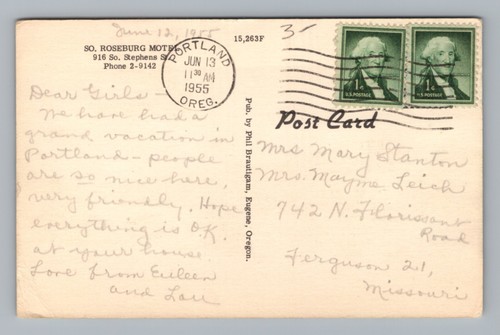 June 12, 1955
SO. ROSEBURG MOTEL
916 So. Stephens St.
Phone 2-9142
15,263F
3-
PORTLAND
JUN 13
11 30 AM
1955
OREG.
1¢
U.S. POSTAGE
1¢
U.S. POSTAGE
Post Card
Pub. by Phil Brautigam, Eugene, Oregon.
Dear Girls -
We have had a
grand vacation in
Portland - people
are so nice here,
very friendly. Hope
everything is O.K.
at your house.
Love from Euleen
and Lou
Mrs Mary Stanton
Mrs. Mayme Leich
742 N. Florissant
Road
Ferguson 21,
Missouri